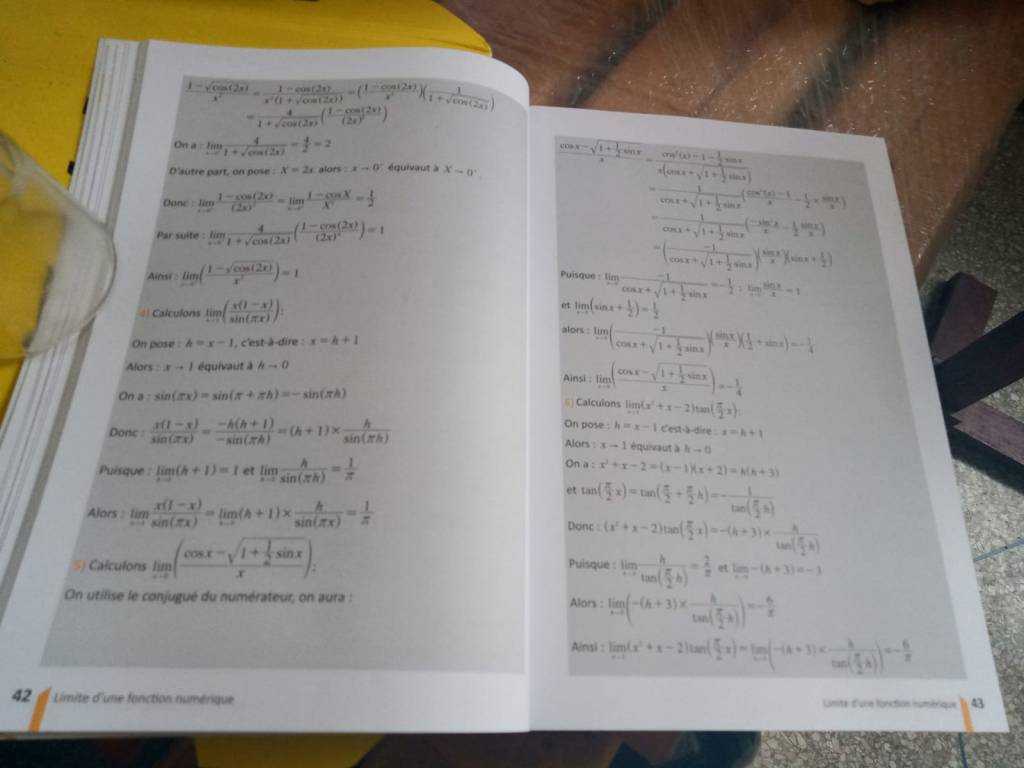 (1-√cos(2x))/x² = (1-cos(2x))/(x²(1+√cos(2x))) = ((1-cos(2x))/x²)(1/(1+√cos(2x)))
= 4/(1+√cos(2x)) ((1-cos(2x))/(2x)²)
On a : lim 4/(1+√cos(2x)) = 4/2 = 2
D'autre part, on pose : X = 2x alors : x → 0⁺ équivaut à X → 0⁺.
Donc : lim (1-cos(2x))/(2x)² = lim (1-cosX)/X² = 1/2
Par suite : lim 4/(1+√cos(2x)) ((1-cos(2x))/(2x)²) = 1
Ainsi : lim ((1-√cos(2x))/x²) = 1
4) Calculons lim (x(1-x)/sin(πx)):
On pose : h = x-1, c'est-à-dire : x = h+1
Alors : x → 1 équivaut à h → 0
On a : sin(πx) = sin(π+πh) = -sin(πh)
Donc : x(1-x)/sin(πx) = -h(h+1)/-sin(πh) = (h+1) × h/sin(πh)
Puisque : lim(h+1) = 1 et lim h/sin(πh) = 1/π
Alors : lim x(1-x)/sin(πx) = lim(h+1) × h/sin(πh) = 1/π
5) Calculons lim ((cosx-√(1+½sinx))/x):
On utilise le conjugué du numérateur, on aura :
42 Limite d'une fonction numérique
(cosx-√(1+½sinx))/x = (cos²(x)-1-½sinx)/(x(cosx+√(1+½sinx)))
= 1/(cosx+√(1+½sinx)) ((cos²(x)-1)/x - ½ × sinx/x)
= 1/(cosx+√(1+½sinx)) (-sin²x/x - ½ sinx/x)
= (-1/(cosx+√(1+½sinx)))(sinx/x)(sinx+½)
Puisque : lim -1/(cosx+√(1+½sinx)) = -½ ; lim sinx/x = 1
et lim(sinx+½) = ½
alors : lim (-1/(cosx+√(1+½sinx)))(sinx/x)(½+sinx) = -¼
Ainsi : lim ((cosx-√(1+½sinx))/x) = -¼
6) Calculons lim(x²+x-2)tan(π/2 x):
On pose : h = x-1 c'est-à-dire : x = h+1
Alors : x → 1 équivaut à h → 0
On a : x²+x-2 = (x-1)(x+2) = h(h+3)
et tan(π/2 x) = tan(π/2 + π/2 h) = -1/tan(π/2 h)
Donc : (x²+x-2)tan(π/2 x) = -(h+3) × h/tan(π/2 h)
Puisque : lim h/tan(π/2 h) = 2/π et lim -(h+3) = -3
Alors : lim(-(h+3) × h/tan(π/2 h)) = -6/π
Ainsi : lim(x²+x-2)tan(π/2 x) = lim(-(h+3) × h/tan(π/2 h)) = -6/π
Limite d'une fonction numérique 43